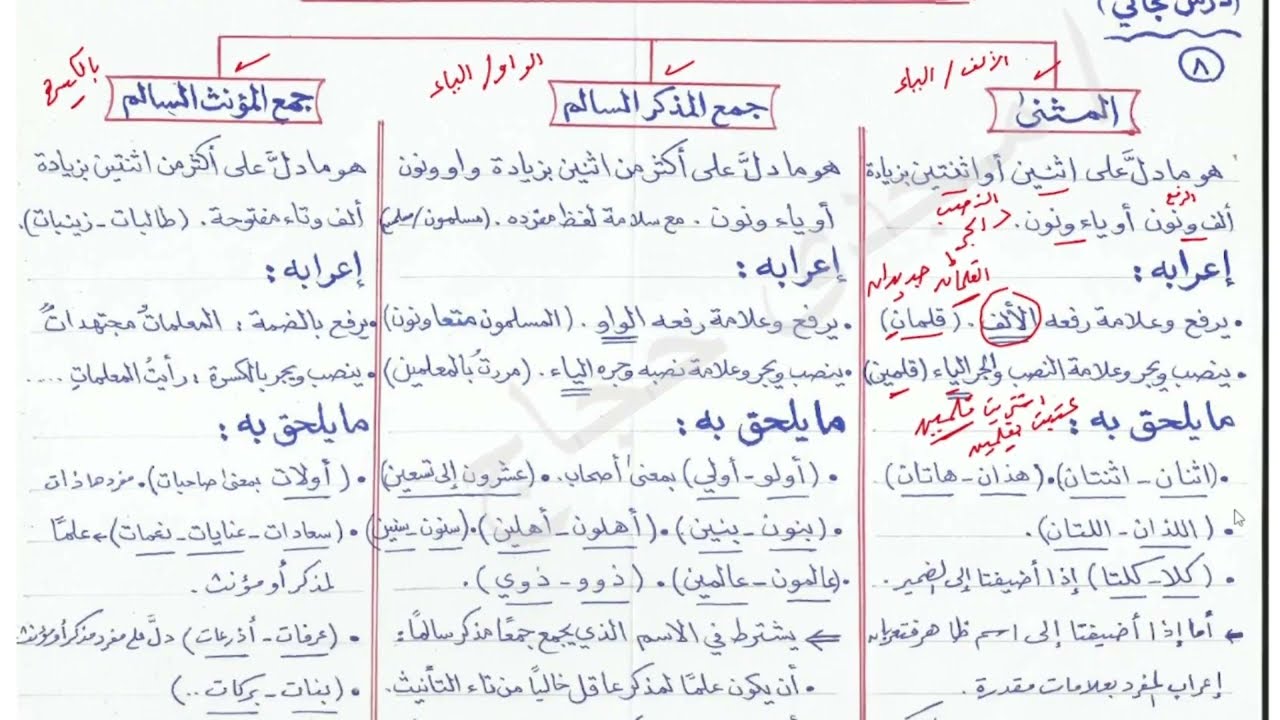 (درس مجاني)
٨
المثنى
الألف / الياء
هو ما دلَّ على اثنين أو اثنتين بزيادة
ألف ونون أو ياء ونون.
الرفع
النصب
الجر
إعرابه:
القلمان جديدان
• يرفع وعلامة رفعه الألف. (قلمان)
• ينصب ويجر وعلامة النصب والجر الياء (قلمين)
اشتريت قلمين
ما يلحق به:
بقلمين
• (اثنان - اثنتان). (هذان - هاتان)
• (اللذان - اللتان).
• (كلا - كلتا) إذا أضيفتا إلى الضمير.
← أما إذا أضيفتا إلى اسم ظاهر فتعربان
إعراب المفرد بعلامات مقدرة.
جمع المذكر السالم
الواو / الياء
هو ما دلَّ على أكثر من اثنين بزيادة واو ونون
أو ياء ونون. مع سلامة لفظ مفرده. (مسلمون/
إعرابه:
• يرفع وعلامة رفعه الواو. (المسلمون متعاونون)
• ينصب ويجر وعلامة نصبه وجره الياء. (مررتُ بالمعلمين)
ما يلحق به:
• (أولو - أولي) بمعنى أصحاب. • (عشرون إلى تسعين)
• (بنون - بنين). • (أهلون - أهلين). (سنون - سنين)
• (عالمون - عالمين). (ذوو - ذوي).
← يشترط في الاسم الذي يجمع جمعًا مذكر سالمًا:
• أن يكون علمًا لمذكر عاقل خاليًا من تاء التأنيث.
جمع المؤنث السالم
بالكسرة
هو ما دلَّ على أكثر من اثنتين بزيادة
ألف وتاء مفتوحة. (طالبات - زينبات).
إعرابه:
• يرفع بالضمة: المعلماتُ مجتهداتٌ
• ينصب ويجر بالكسرة: رأيتُ المعلماتِ ....
ما يلحق به:
• (أولات بمعنى صاحبات). مفردها ذات
• (سعادات - عنايات - نعمات) ← علمًا
لمذكر أو مؤنث.
• (عرفات - أذرعات) دلَّ على مفرد مذكر أو مؤنث
• (بنات - بركات ..)